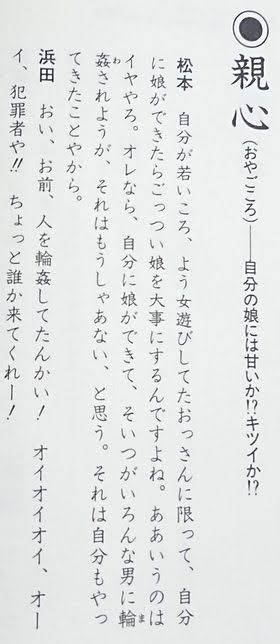 ◉親心(おやごころ)——自分の娘には甘いか!?キツイか!?
松本　自分が若いころ、よう女遊びしてたおっさんに限って、自分
に娘ができたらごっつい娘を大事にするんですよね。ああいうのは
イヤやろ。オレなら、自分に娘ができて、そいつがいろんな男に輪
姦されようが、それはもうしゃあない、と思う。それは自分もやっ
てきたことやから。
浜田　おい、お前、人を輪姦してたんかい！　オイオイオイ、オー
イ、犯罪者や!!　ちょっと誰か来てくれー！